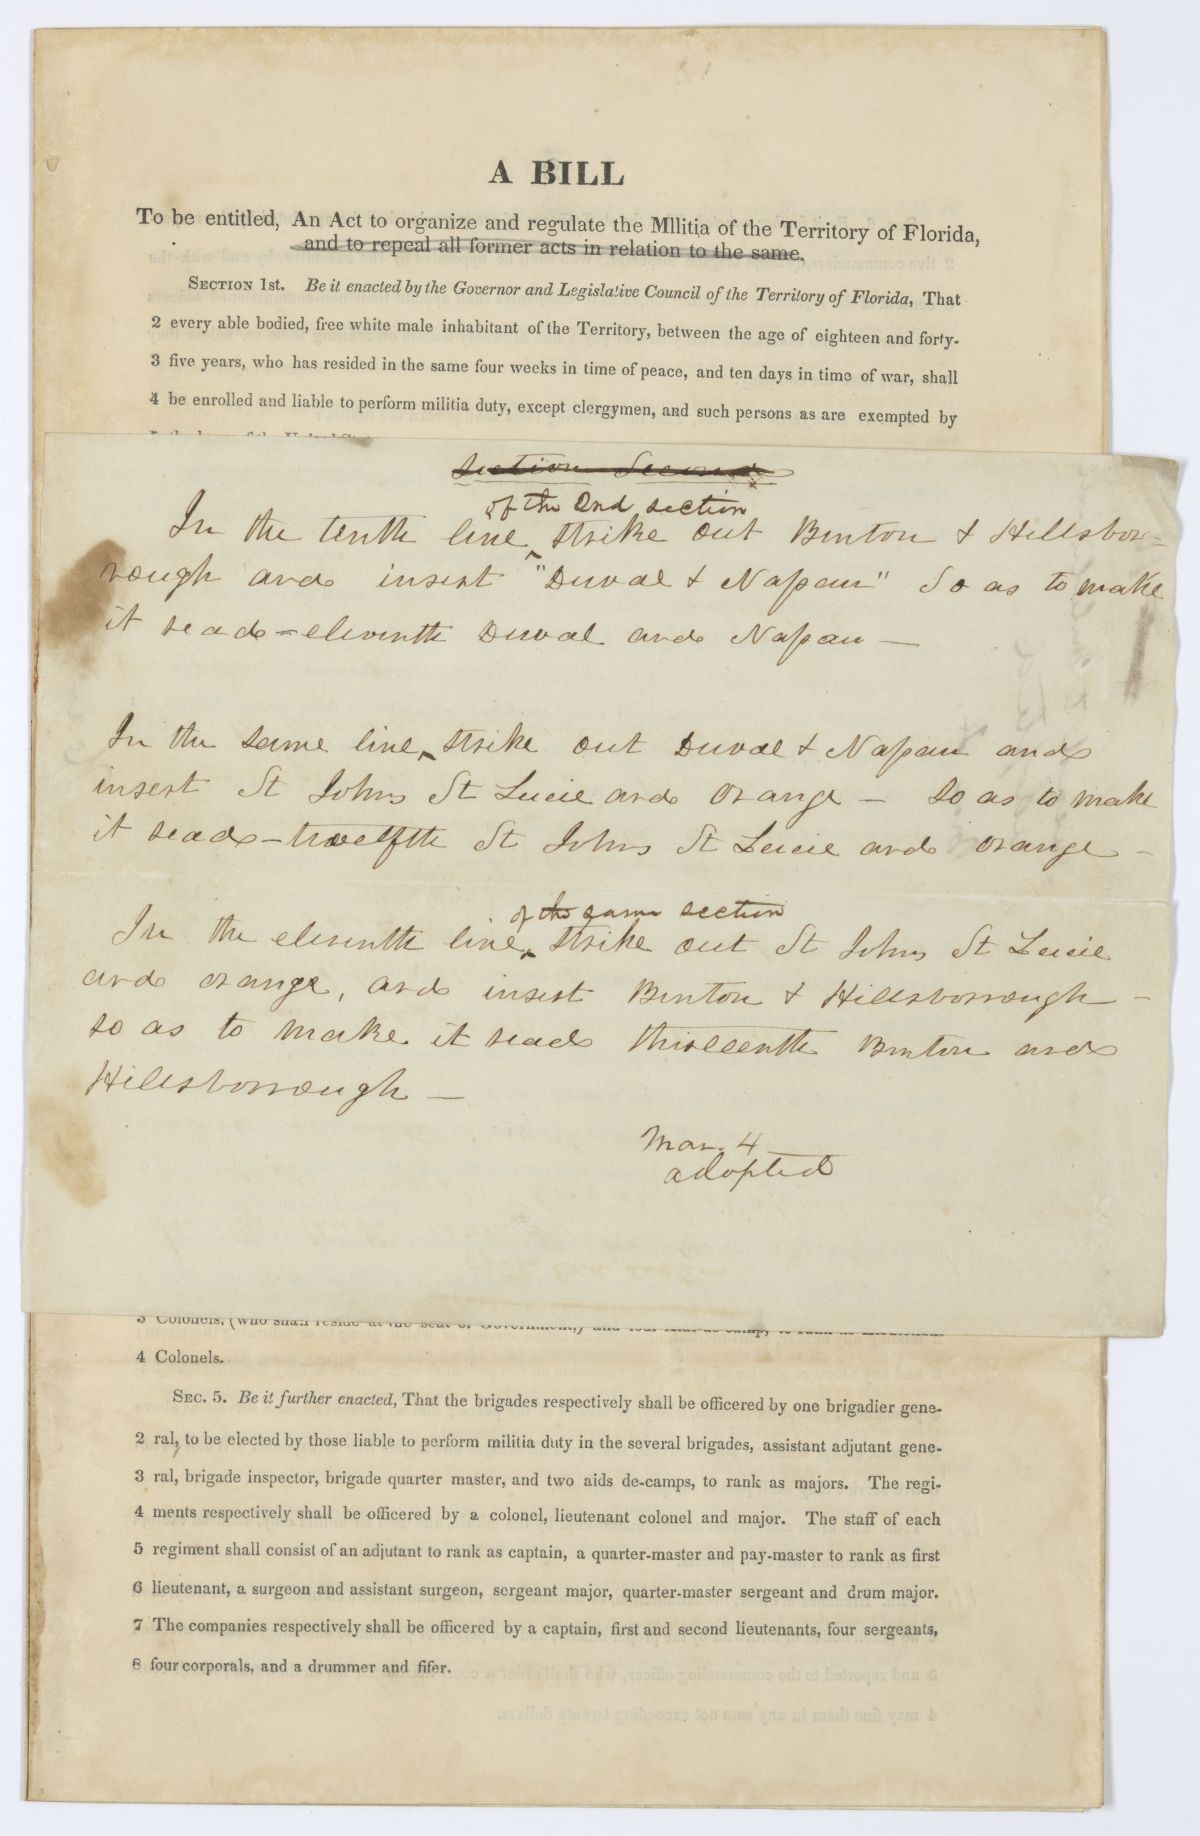 A BILL
To be entitled, An Act to organize and regulate the Mllitia of the Territory of Florida,
and to repeal all former acts in relation to the same.
SECTION 1st. Be it enacted by the Governor and Legislative Council of the Territory of Florida, That
2 every able bodied, free white male inhabitant of the Territory, between the age of eighteen and forty-
3 five years, who has resided in the same four weeks in time of peace, and ten days in time of war, shall
4 be enrolled and liable to perform militia duty, except clergymen, and such persons as are exempted by
Section Second
of the 2nd section
In the tenth line strike out Benton & Hillsbor=
rough and insert "Duval & Nassau" So as to make
it read = eleventh Duval and Nassau —
In the same line strike out Duval & Nassau and
insert St Johns St Lucie and Orange — so as to make
it read - twelfth St Johns St Lucie and Orange —
of the same section
In the eleventh line strike out St Johns St Lucie
and orange, and insert Benton & Hillsborrough —
so as to make it read thirteenth Benton and
Hillsborrough —
Mar. 4
adopted
3 Colonels, (who shall reside at the seat of Government,) and four Aids-de-camp, to rank as Lieutenant
4 Colonels.
SEC. 5. Be it further enacted, That the brigades respectively shall be officered by one brigadier gene-
2 ral, to be elected by those liable to perform militia duty in the several brigades, assistant adjutant gene-
3 ral, brigade inspector, brigade quarter master, and two aids de-camps, to rank as majors. The regi-
4 ments respectively shall be officered by a colonel, lieutenant colonel and major. The staff of each
5 regiment shall consist of an adjutant to rank as captain, a quarter-master and pay-master to rank as first
6 lieutenant, a surgeon and assistant surgeon, sergeant major, quarter-master sergeant and drum major.
7 The companies respectively shall be officered by a captain, first and second lieutenants, four sergeants,
8 four corporals, and a drummer and fifer.